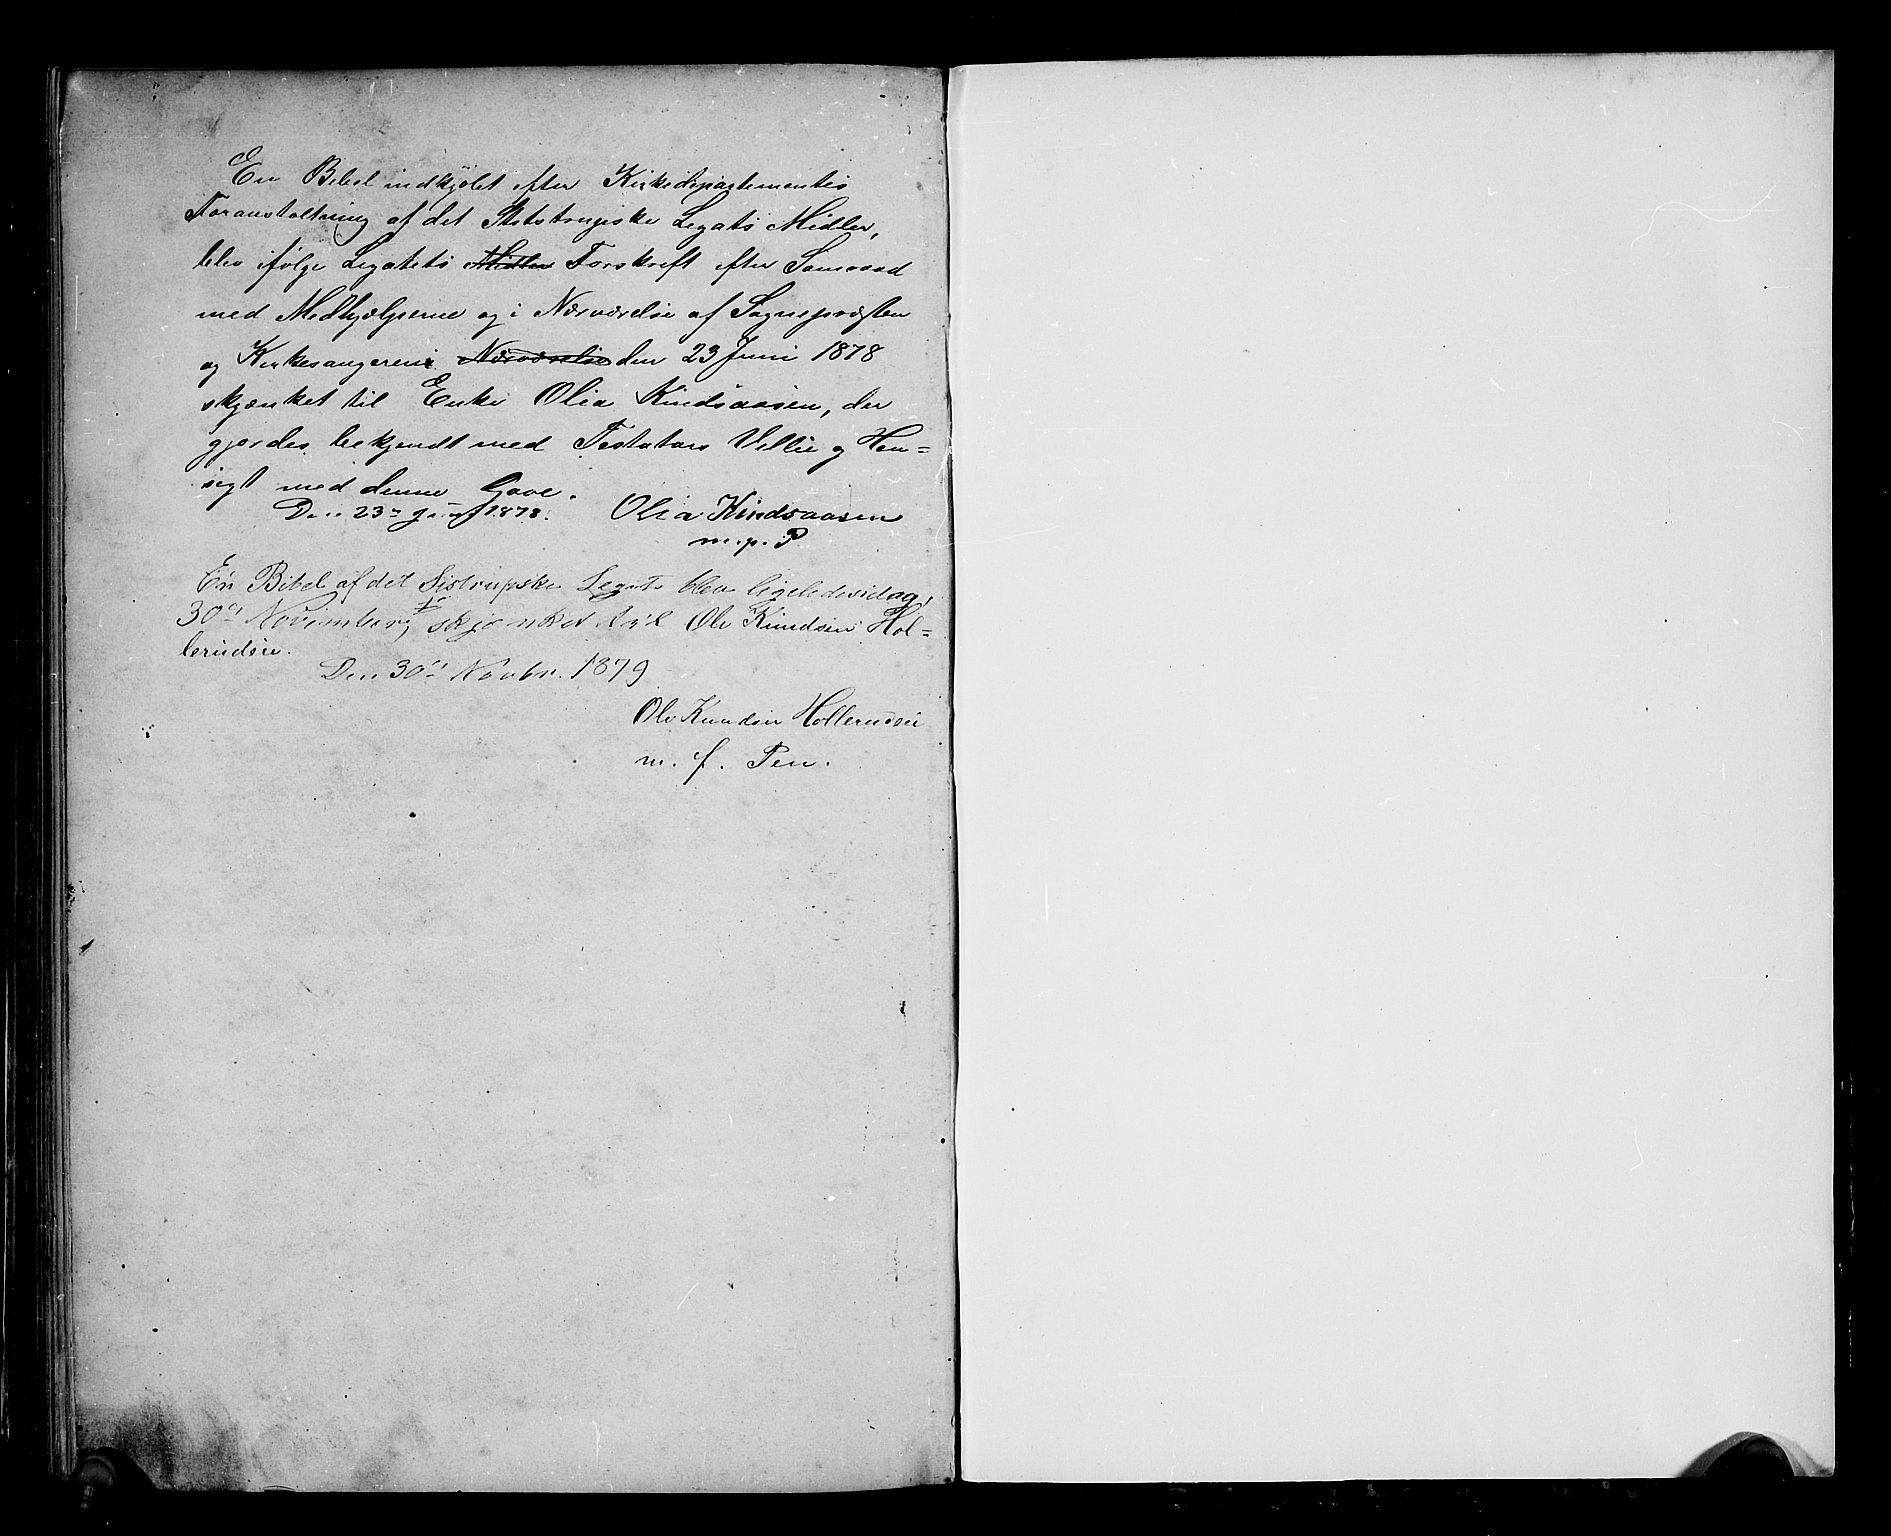 En Bibel indkjöbt efter Kirkedepartementets
Foranstaltning af det Legats Midler,
blev ifølge Legatets Midler Forskrift efter Samraad
med Medhjælperne og i Nærværelse af Sognepræsten
og Kirkesangeren Nærværelse den 23 Juni 1878
skjænket til Enke Olia Kindsaasen, der
gjordes bekjendt med Testators Villie og Hen=
sigt med denne Gave.
Den 23 Juni 1878. Olia Kindsaasen
m. p. P
En Bibel af det Sistrupske Legat blev ligeledes idag,
30te November, skjænket til Ole Knudsen Hol=
lerudeie.
Den 30te Novbr. 1879
Ole Knudsen Hollerudeie
m. f. Pen.